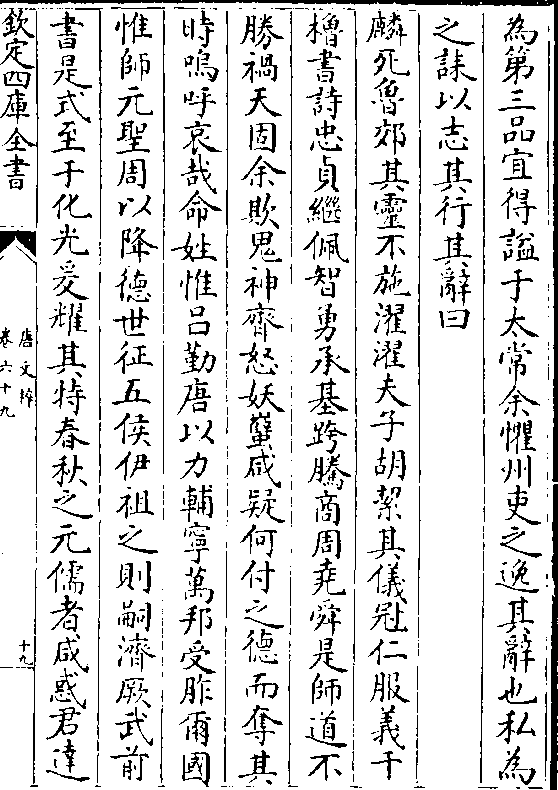 為第三品宜得諡于太常余懼州吏之逸其辭也私為
之誄以志其行其辭曰
麟死魯郊其靈不施濯濯夫子胡絜其儀冠仁服義干
櫓書詩忠貞繼佩智勇承基跨騰商周堯舜是師道不
勝禍天固余欺鬼神齊怒妖𧕟咸疑何付之德而奪其
時嗚呼哀哉命姓惟吕勤唐以力輔寧萬邦受胙爾國
惟師元聖周以降德世征五侯伊祖之則嗣濟厥武前
書是式至于化光爰耀其特春秋之元儒者咸惑君達
欽定四庫全書
唐文粹
卷六十九
十九